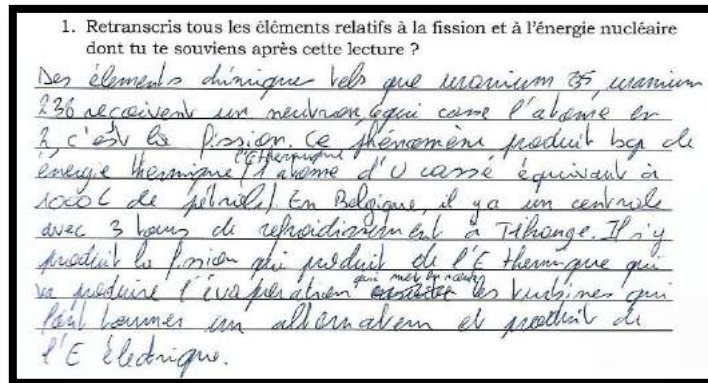 1. Retranscris tous les éléments relatifs à la fission et à l'énergie nucléaire
dont tu te souviens après cette lecture ?
Des éléments chimiques tels que uranium 235, uranium
236 reçoivent un neutron, qui casse l'atome en
2, c'est la fission. Ce phénomène produit bcp de
énergie thermique (1 atome d'U cassé équivaut à
l'E thermique
1000 L de pétrole). En Belgique, il y a un centrale
avec 3 tours de refroidissement à Tihange. Il s'y
produit la fission qui produit de l'E thermique qui
va produire l'évaporation qui met en les turbines qui
font tourner un alternateur et produit de
l'E électrique.